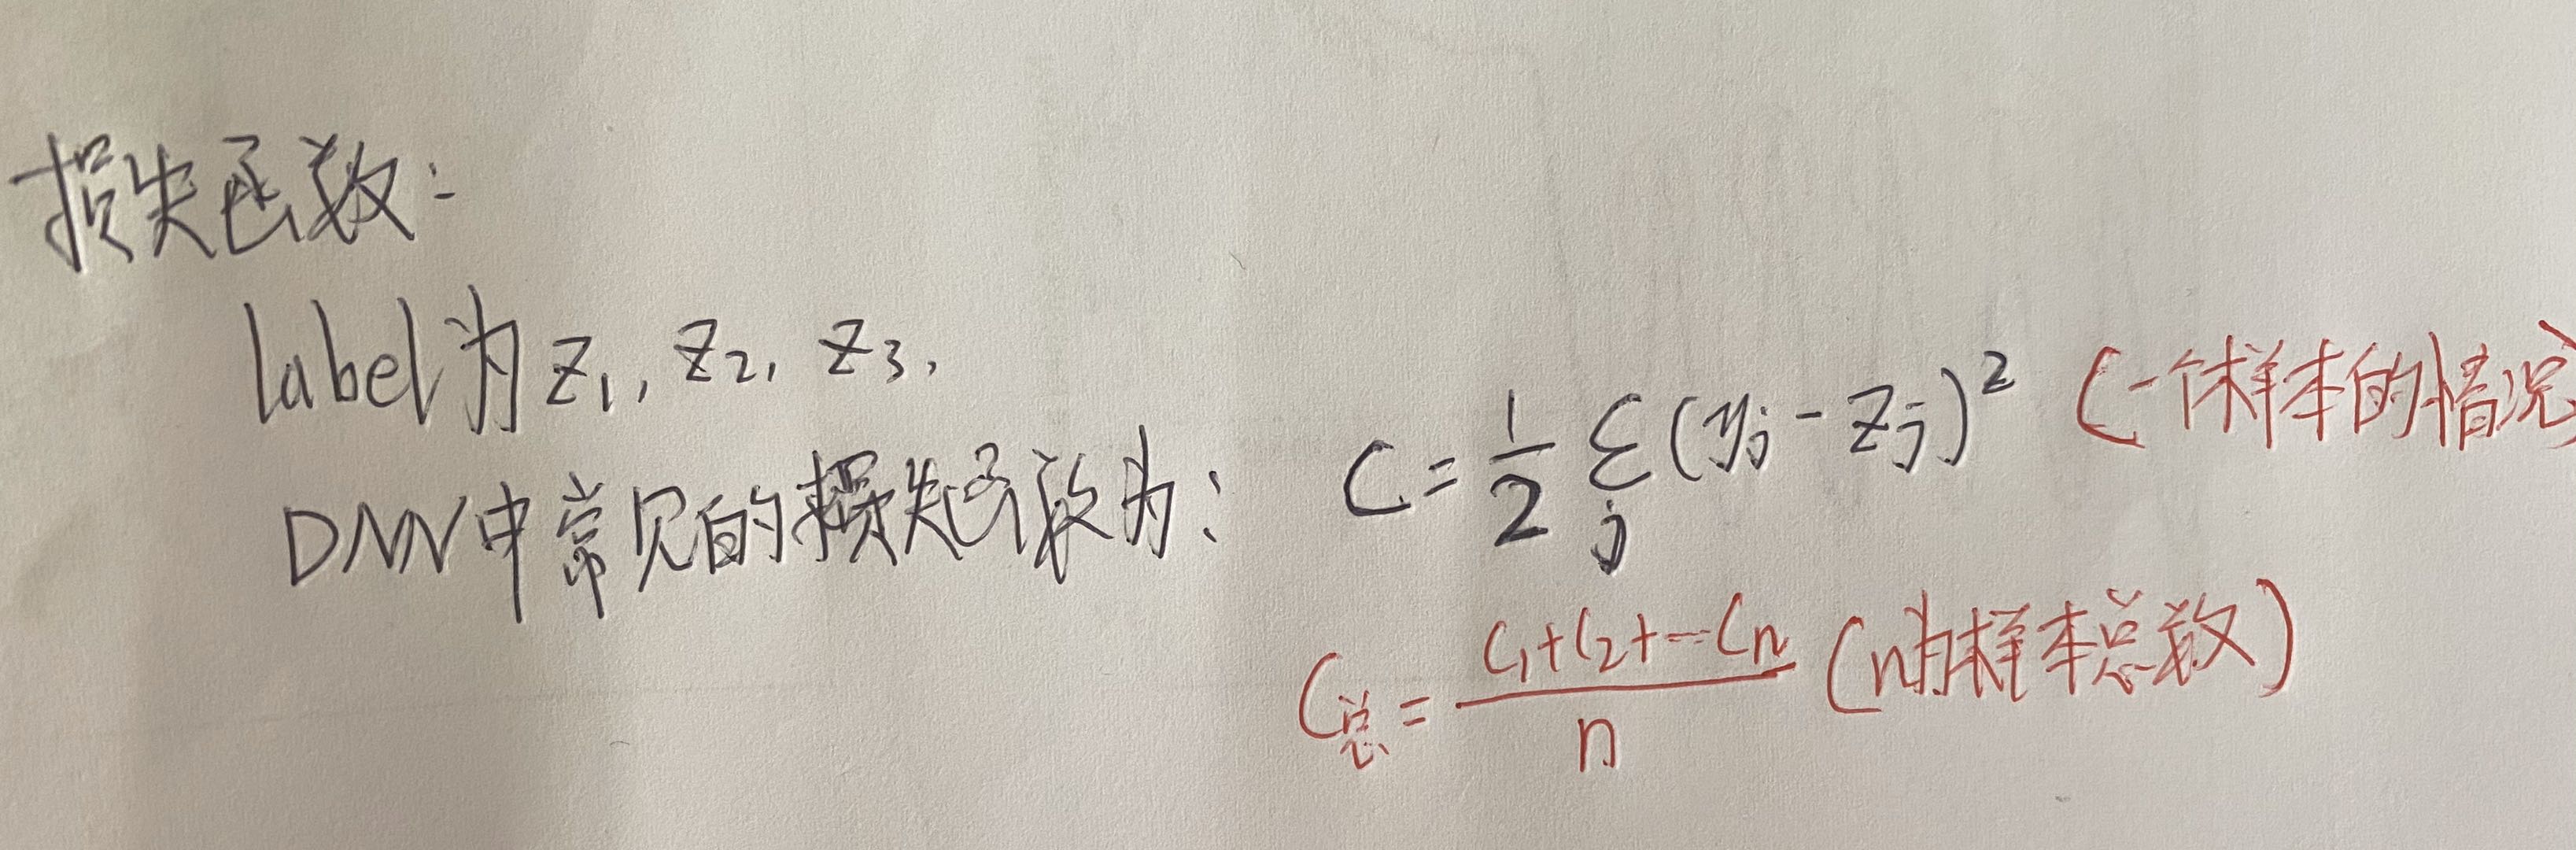 损失函数:
label为 z₁, z₂, z₃,
DNN中常见的损失函数为: C = 1/2 Σ_j (y_j - z_j)² (一个样本的情况)
C总 = (C₁+C₂+…Cn)/n (n为样本总数)